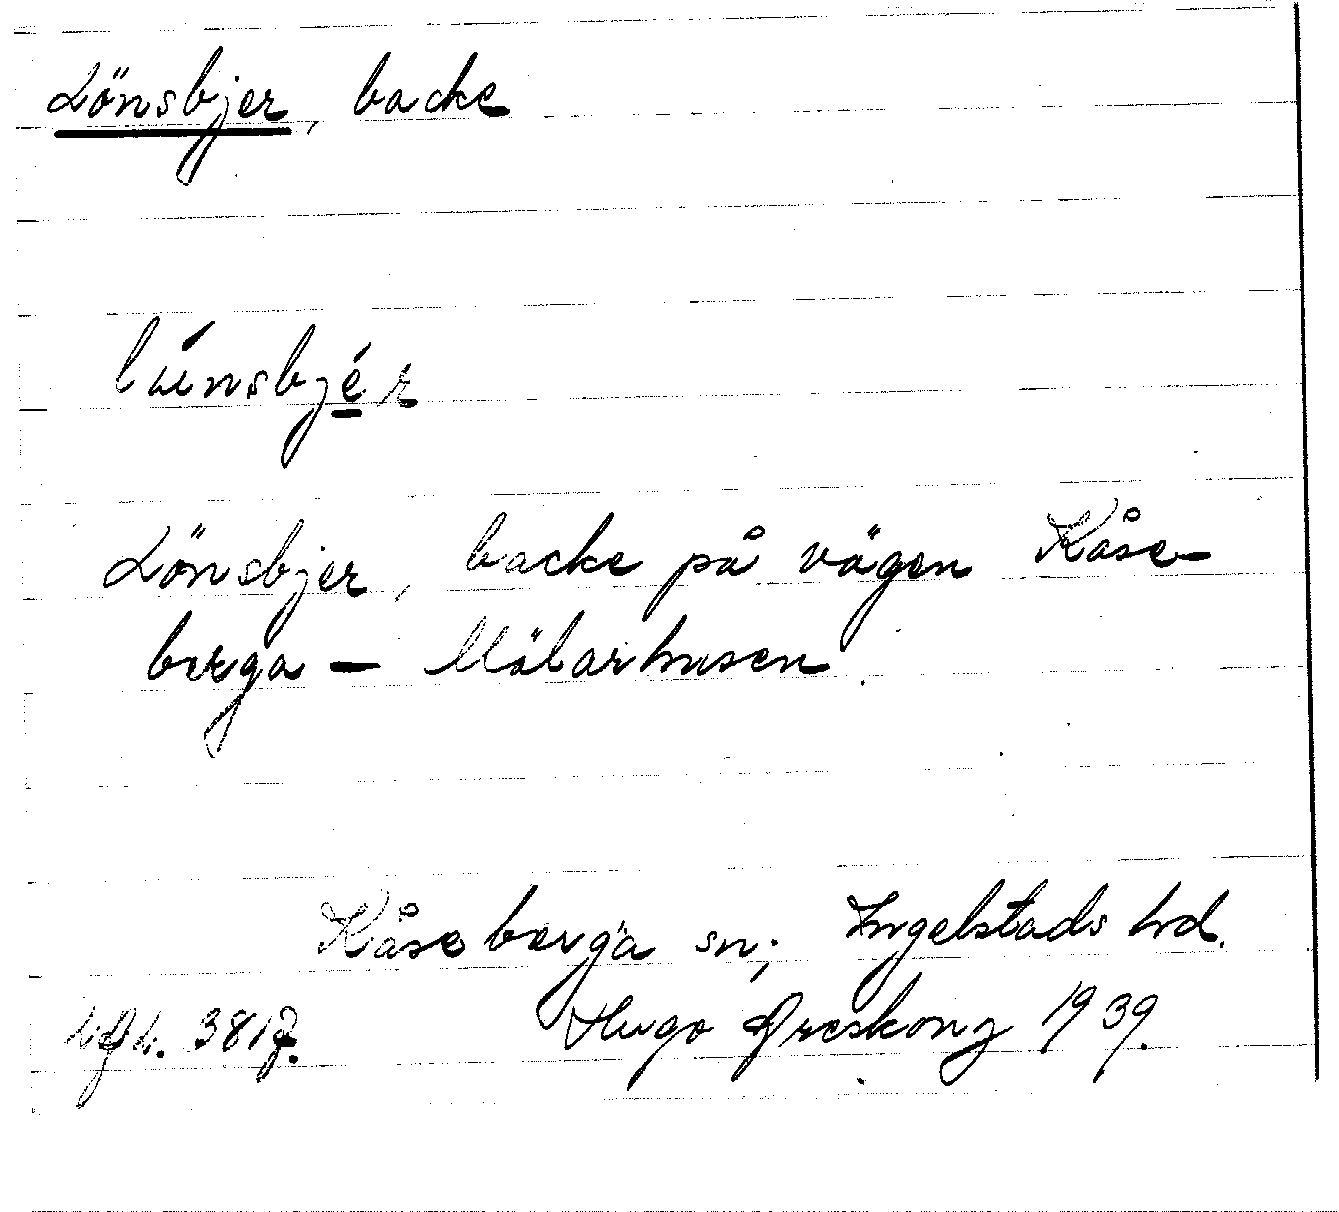 Lönsbjer, backe
Lönsbjer, backe på vägen Kåse-
berga – Mälarhusen.
Kåseberga sn; Ingelstads hd.
3817. Hugo Areskong 1939.